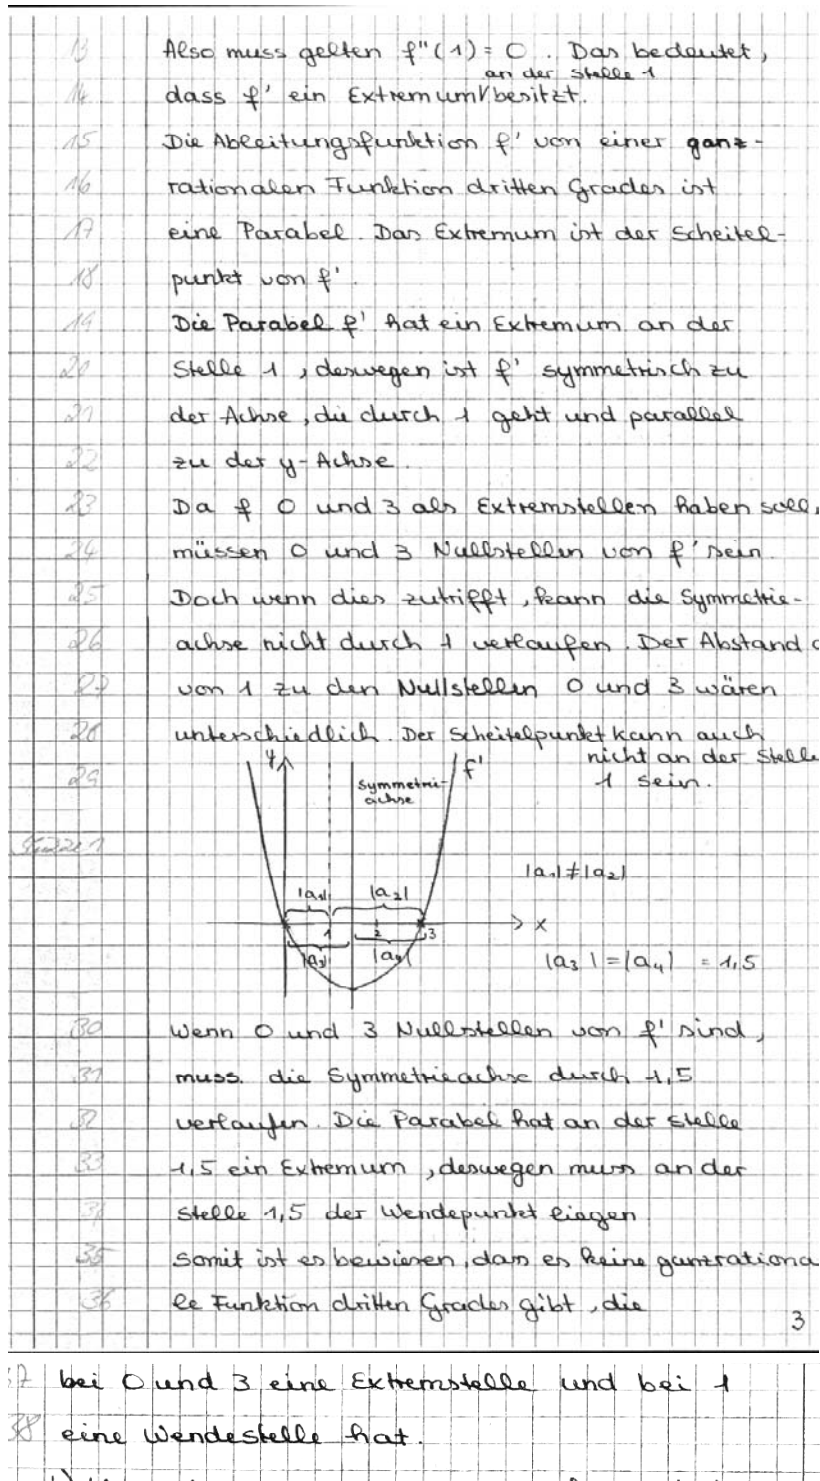 13 Also muss gelten f''(1) = 0. Das bedeutet,
an der Stelle 1
14 dass f' ein Extremum/besitzt.
15 Die Ableitungsfunktion f' von einer ganz-
16 rationalen Funktion dritten Grades ist
17 eine Parabel. Das Extremum ist der Scheitel-
18 punkt von f'.
19 Die Parabel f' hat ein Extremum an der
20 Stelle 1, deswegen ist f' symmetrisch zu
21 der Achse, die durch 1 geht und parallel
22 zu der y-Achse.
23 Da f 0 und 3 als Extremstellen haben soll,
24 müssen 0 und 3 Nullstellen von f' sein.
25 Doch wenn dies zutrifft, kann die Symmetrie-
26 achse nicht durch 1 verlaufen. Der Abstand
27 von 1 zu den Nullstellen 0 und 3 wären
28 unterschiedlich. Der Scheitelpunkt kann auch
nicht an der Stelle
29 1 sein.
y f'
Symmetrie-
achse
Skizze 1
|a₁| |a₂| |a₁| ≠ |a₂|
1 2 3 x
|a₃| |a₄| |a₃| = |a₄| = 1,5
30 Wenn 0 und 3 Nullstellen von f' sind,
31 muss. die Symmetrieachse durch 1,5
32 verlaufen. Die Parabel hat an der Stelle
33 1,5 ein Extremum, deswegen muss an der
34 Stelle 1,5 der Wendepunkt liegen
35 Somit ist es bewiesen, dass es keine ganzrationa
36 le Funktion dritten Grades gibt, die
3
37 bei 0 und 3 eine Extremstelle und bei 1
38 eine Wendestelle hat.